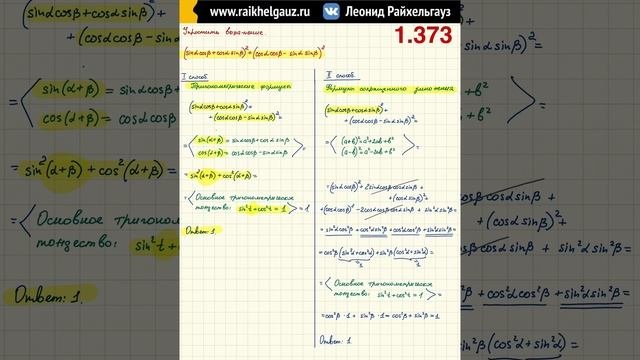 www.raikhelgauz.ru Леонид Райхельгауз
1.373
Упростить выражение.
(sinαcosβ+cosαsinβ)²+(cosαcosβ-sinαsinβ)²
I способ
Тригонометрические формулы
(sinαcosβ+cosαsinβ)²+
+(cosαcosβ-sinαsinβ)²=
=⟨sin(α+β)=sinαcosβ+cosαsinβ
cos(α+β)=cosαcosβ-sinαsinβ⟩=
=sin²(α+β)+cos²(α+β)=
=⟨Основное тригонометрическое
тождество: sin²t+cos²t=1⟩=1
Ответ: 1.
II способ
Формулы сокращенного умножения
(sinαcosβ+cosαsinβ)²+
+(cosαcosβ-sinαsinβ)²=
=⟨(a+b)²=a²+2ab+b²
(a-b)²=a²-2ab+b²⟩=
=(sinαcosβ)²+2sinαcosβcosαsinβ+
+(cosαsinβ)²+
+(cosαcosβ)²-2cosαcosβsinαsinβ+sin²αsin²β=
=sin²αcos²β+cos²αsin²β+cos²αcos²β+sin²αsin²β=
=cos²β(sin²α+cos²α)+sin²β(cos²α+sin²α)=
1 1
=⟨Основное тригонометрическое
тождество: sin²t+cos²t=1⟩=
=cos²β·1+sin²β·1=cos²β+sin²β=1
Ответ: 1